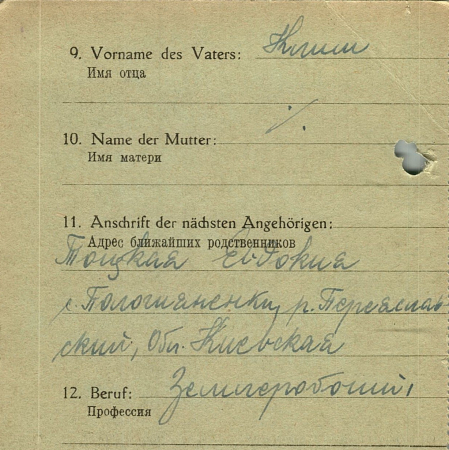 9. Vorname des Vaters: Клим
Имя отца
10. Name der Mutter: ·/.
Имя матери
11. Anschrift der nächsten Angehörigen:
Адрес ближайших родственников
Тоцкая Евдокия
с. р. Переяслав
ский, Обл. Киевская
12. Beruf:
Профессия